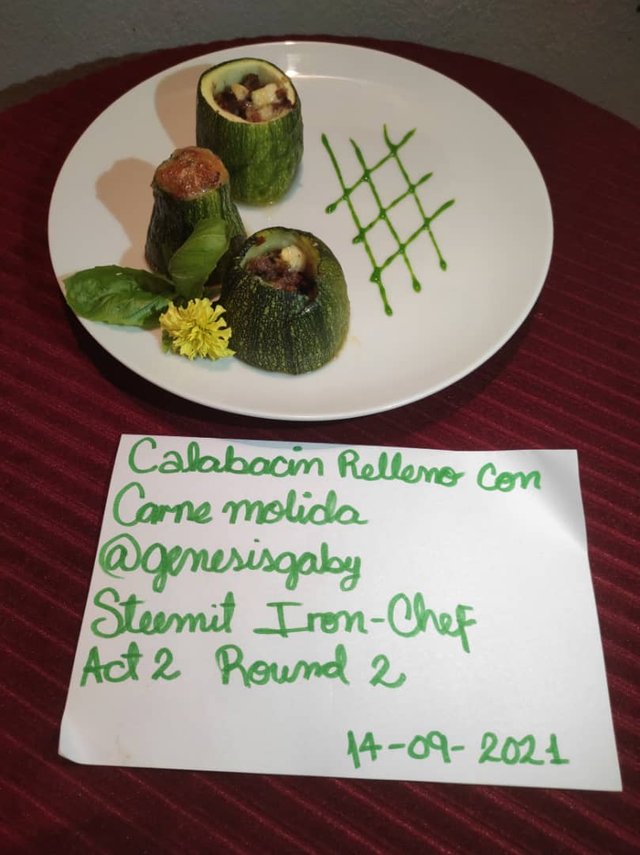 Calabacin Relleno con
Carne molida
@genesisgaby
Steemit Iron-Chef
Act 2 Round 2
14-09-2021